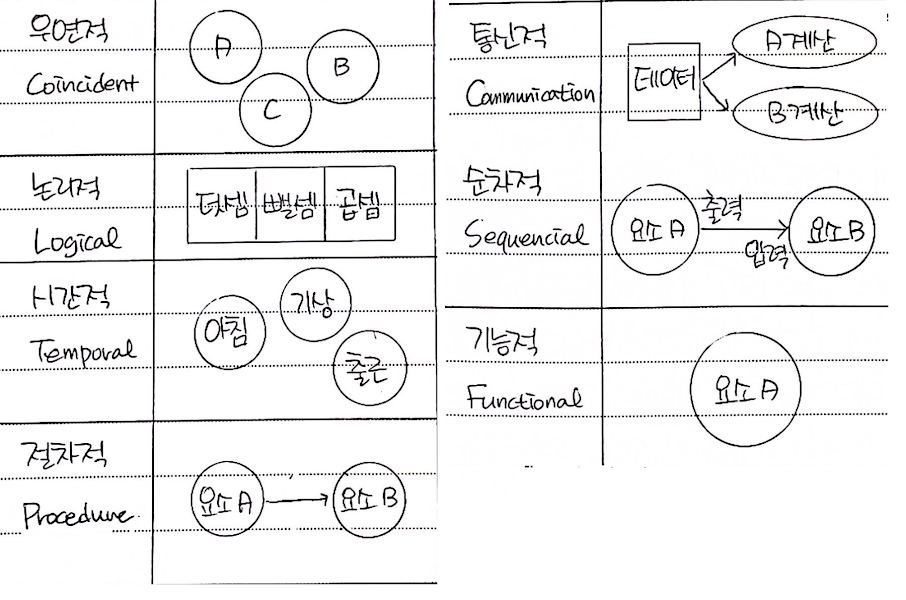 우연적
Coincident
A
B
C
논리적
Logical
덧셈 뺄셈 곱셈
시간적
Temporal
아침
기상
출근
절차적
Procedure
요소 A
요소 B
통신적
Communication
데이터
A 계산
B 계산
순차적
Sequencial
요소 A
출력
입력
요소 B
기능적
Functional
요소 A